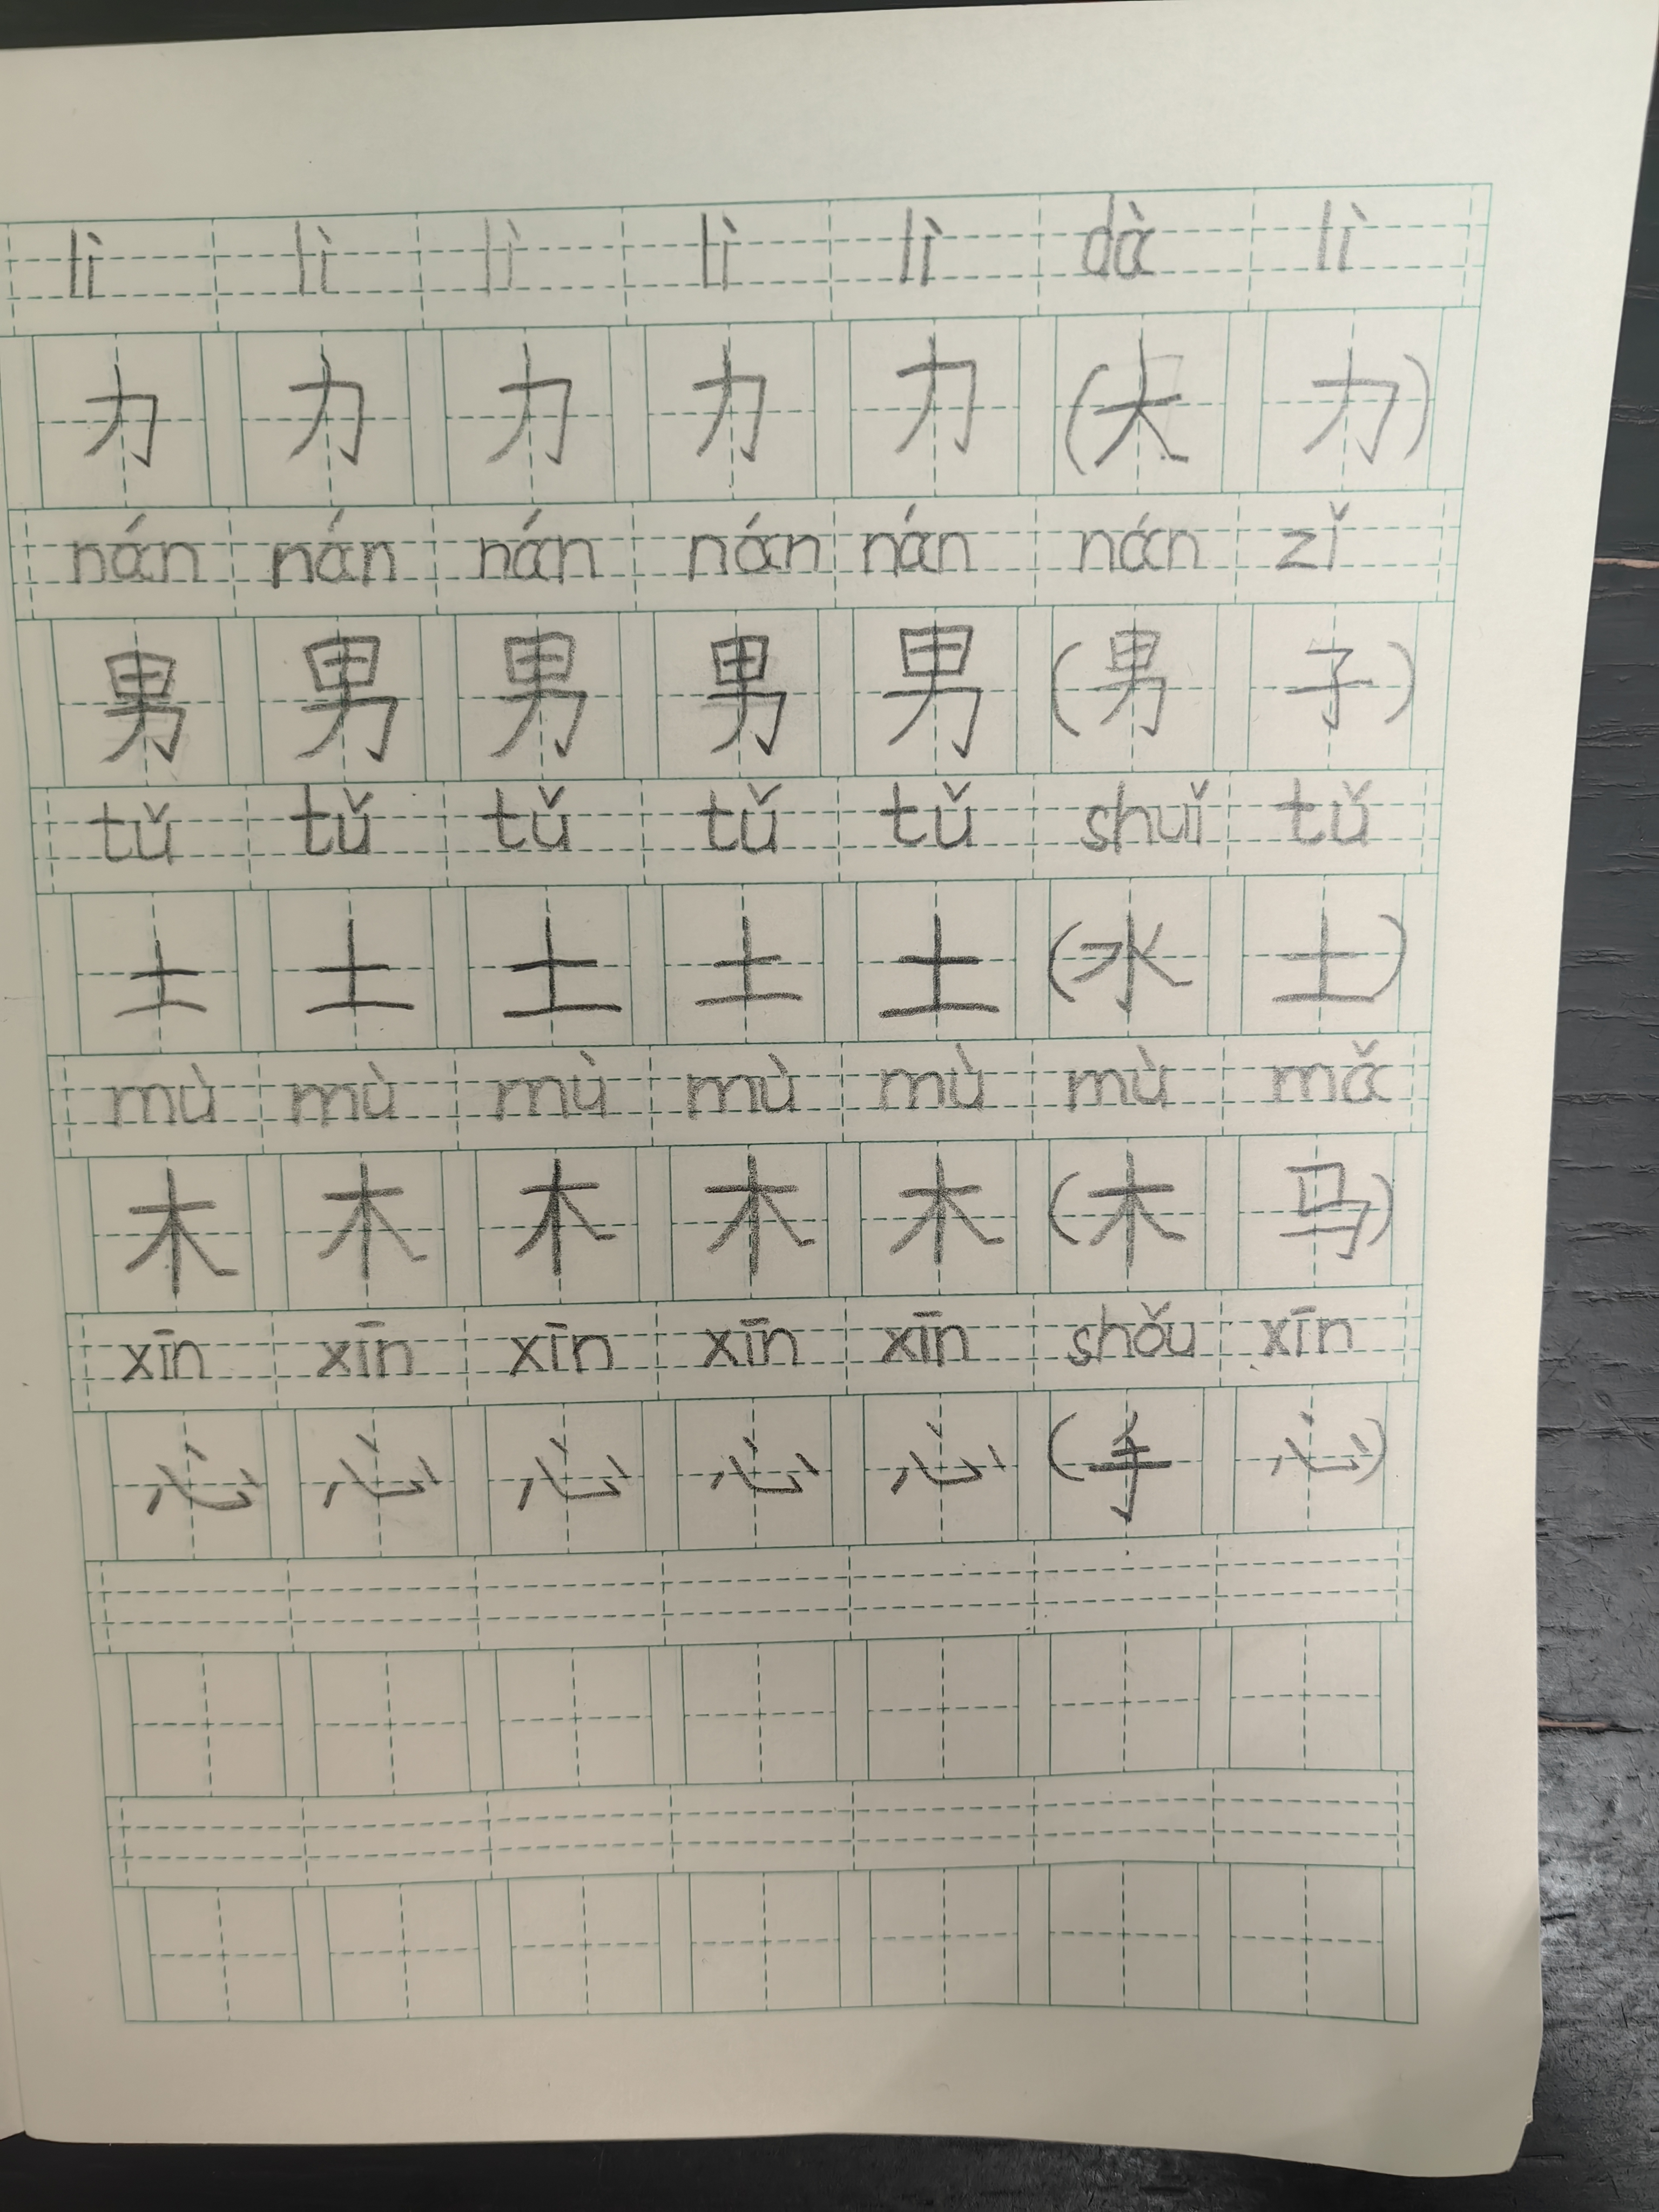 lì lì lì lì lì dà lì
力 力 力 力 力 (大 力)
nán nán nán nán nán nán zǐ
男 男 男 男 男 (男 子)
tǔ tǔ tǔ tǔ tǔ shuǐ tǔ
土 土 土 土 土 (水 土)
mù mù mù mù mù mù mǎ
木 木 木 木 木 (木 马)
xīn xīn xīn xīn xīn shǒu xīn
心 心 心 心 心 (手 心)